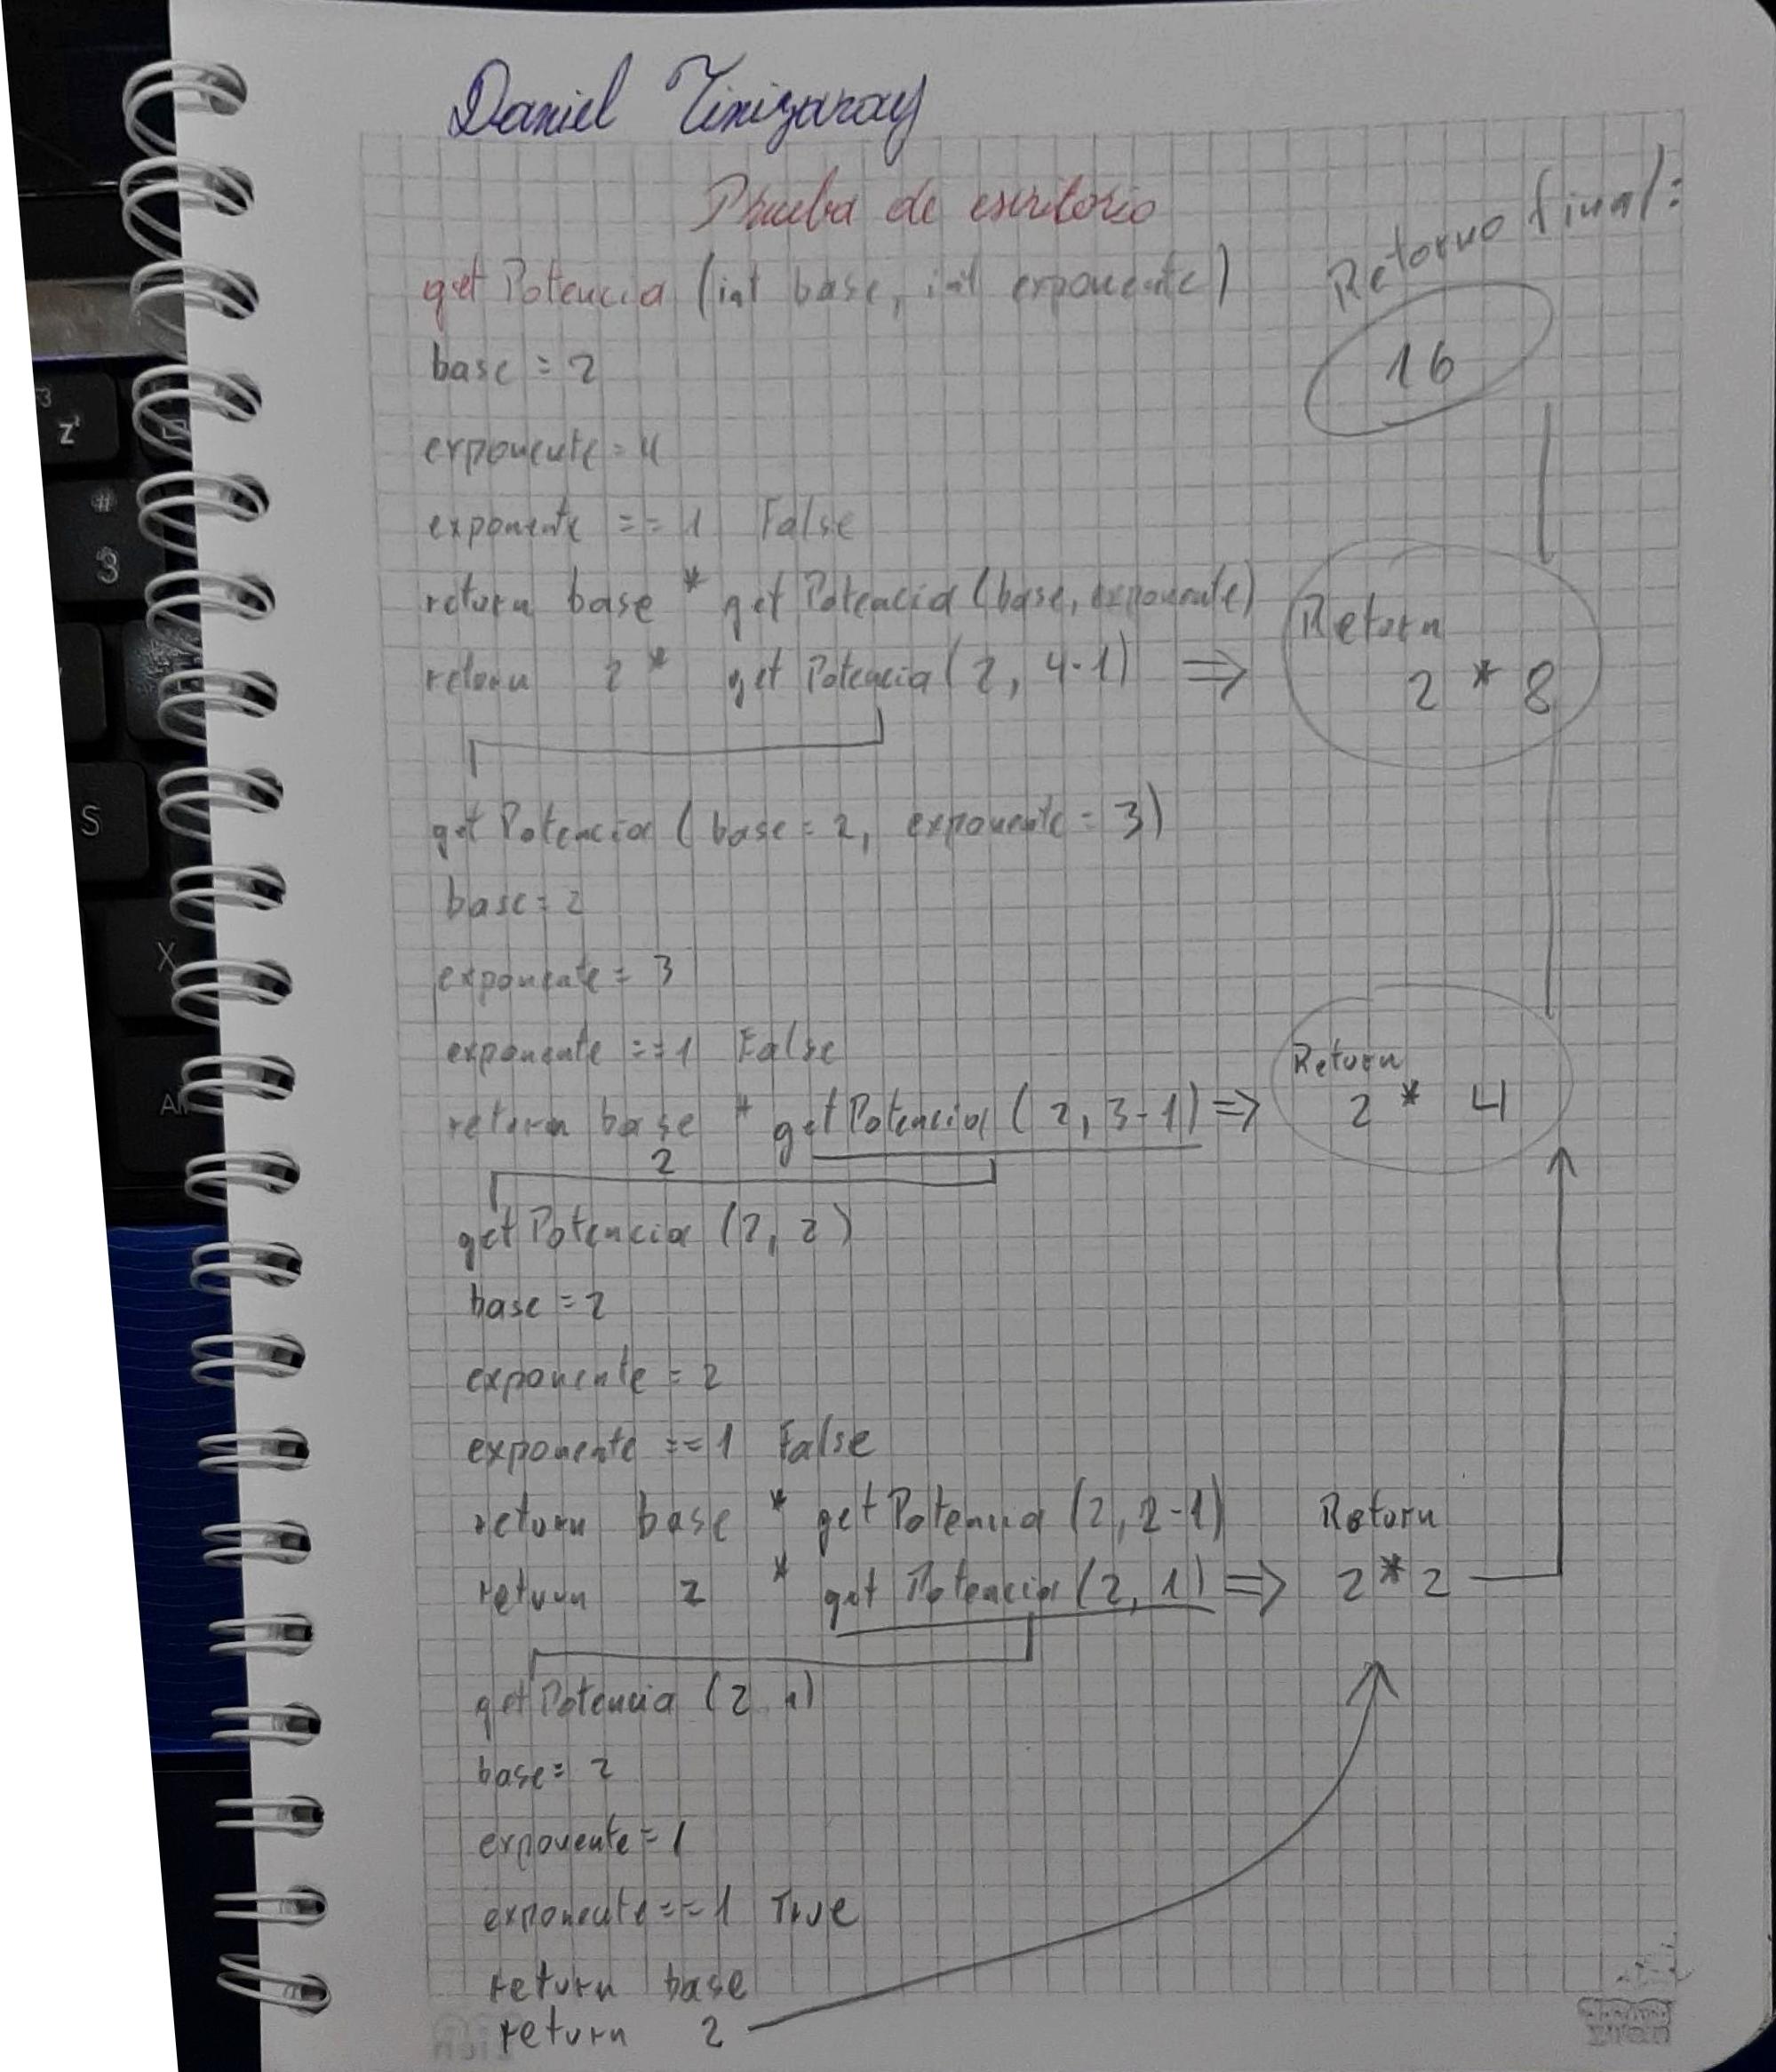 Daniel Tinizaray
Prueba de escritorio
Retorno final:
16
getPotencia (int base, int exponente)
base = 2
exponente = 4
exponente == 1 False
return base * getPotencia (base, exponente)
return 2 * getPotencia (2, 4-1) ⇒ Return 2 * 8
getPotencia (base = 2, exponente = 3)
base = 2
exponente = 3
exponente == 1 False
return base * getPotencia (2, 3-1) ⇒ Return 2 * 4
2
getPotencia (2, 2)
base = 2
exponente = 2
exponente == 1 False
return base * getPotencia (2, 2-1) Return
return 2 * getPotencia (2, 1) ⇒ 2 * 2
getPotencia (2 1)
base = 2
exponente = 1
exponente == 1 True
return base
return 2
Z
#
3
S
X